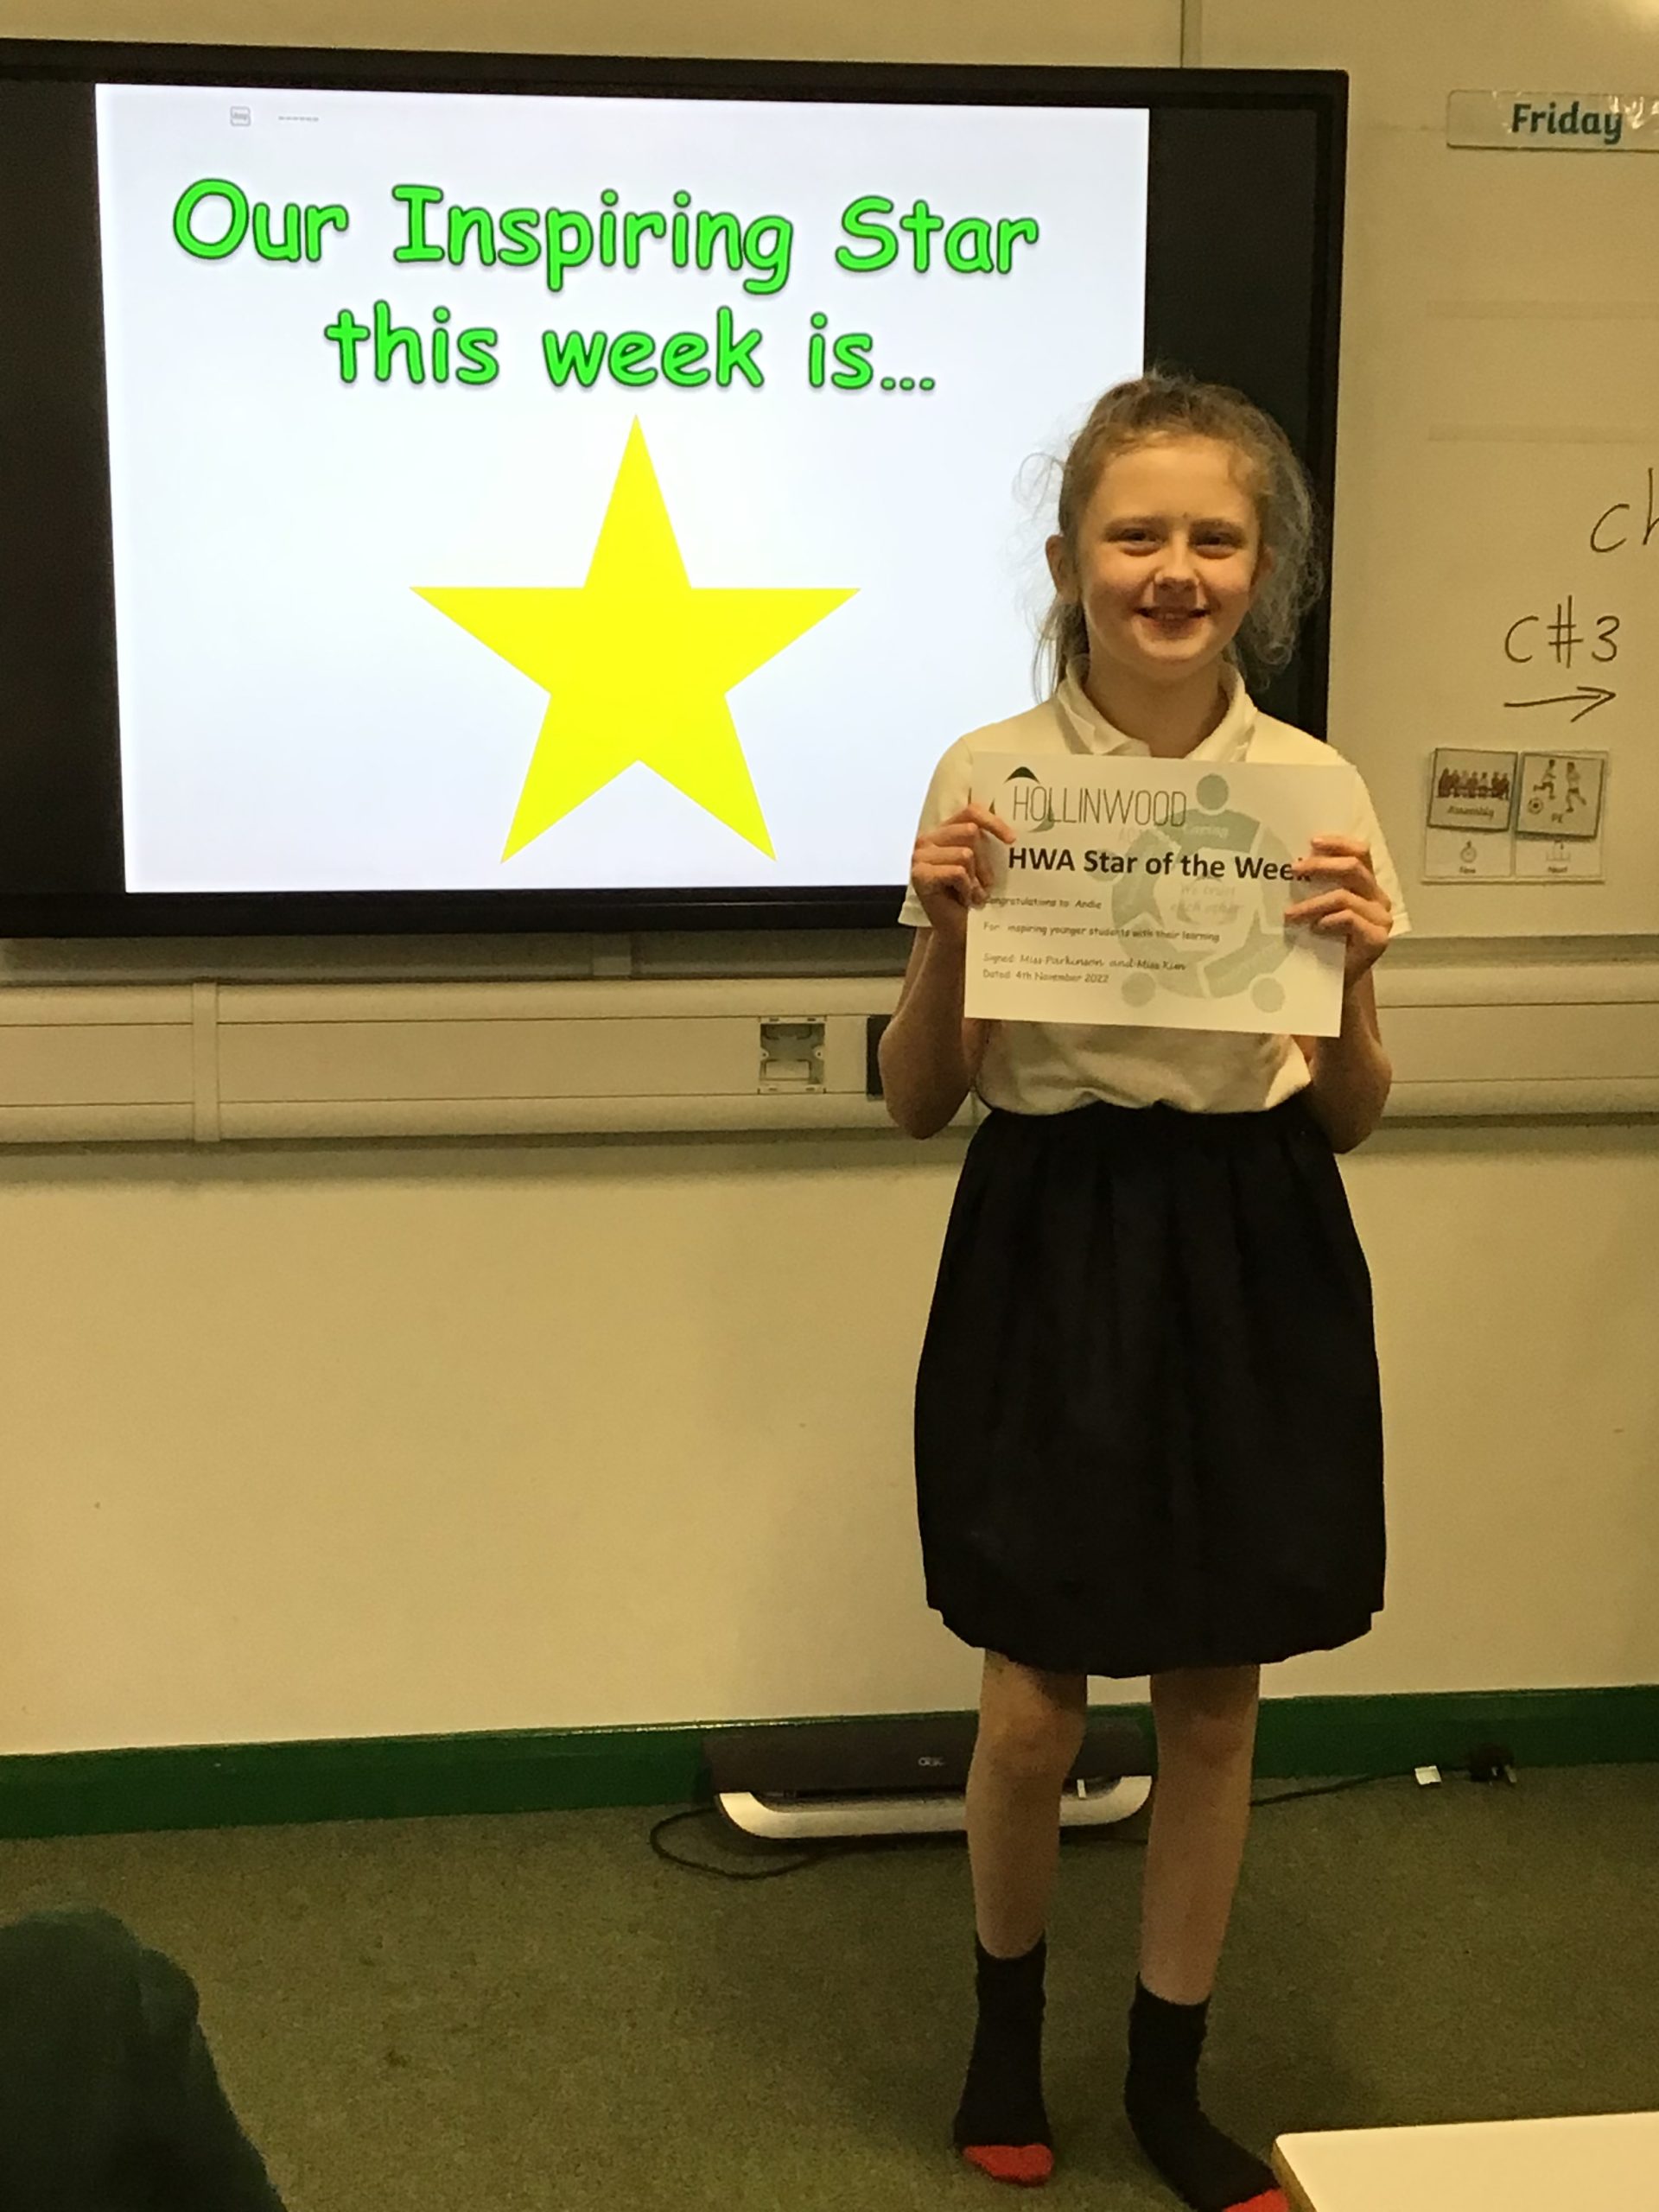 Our Inspiring Star
this week is...
Friday
ch
C#3
Assembly
PE
Now
Next
HOLLINWOOD
Caring
HWA Star of the Week
We trust
each other
Congratulations to: Andie
For: inspiring younger students with their learning
Signed: Miss Parkinson and Miss Kim
Dated: 4th November 2022